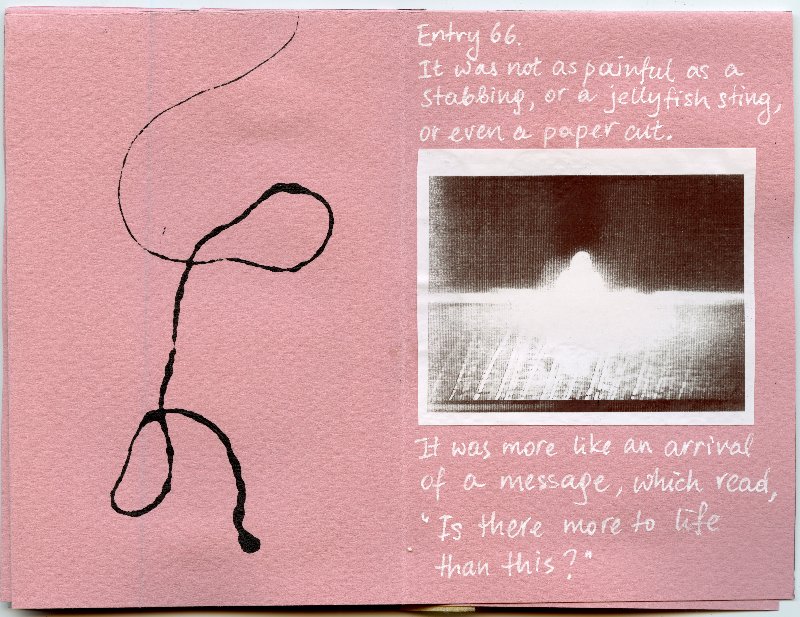 Entry 66.
It was not as painful as a
stabbing, or a jellyfish sting,
or even a paper cut.
It was more like an arrival
of a message, which read,
"Is there more to life
than this?"